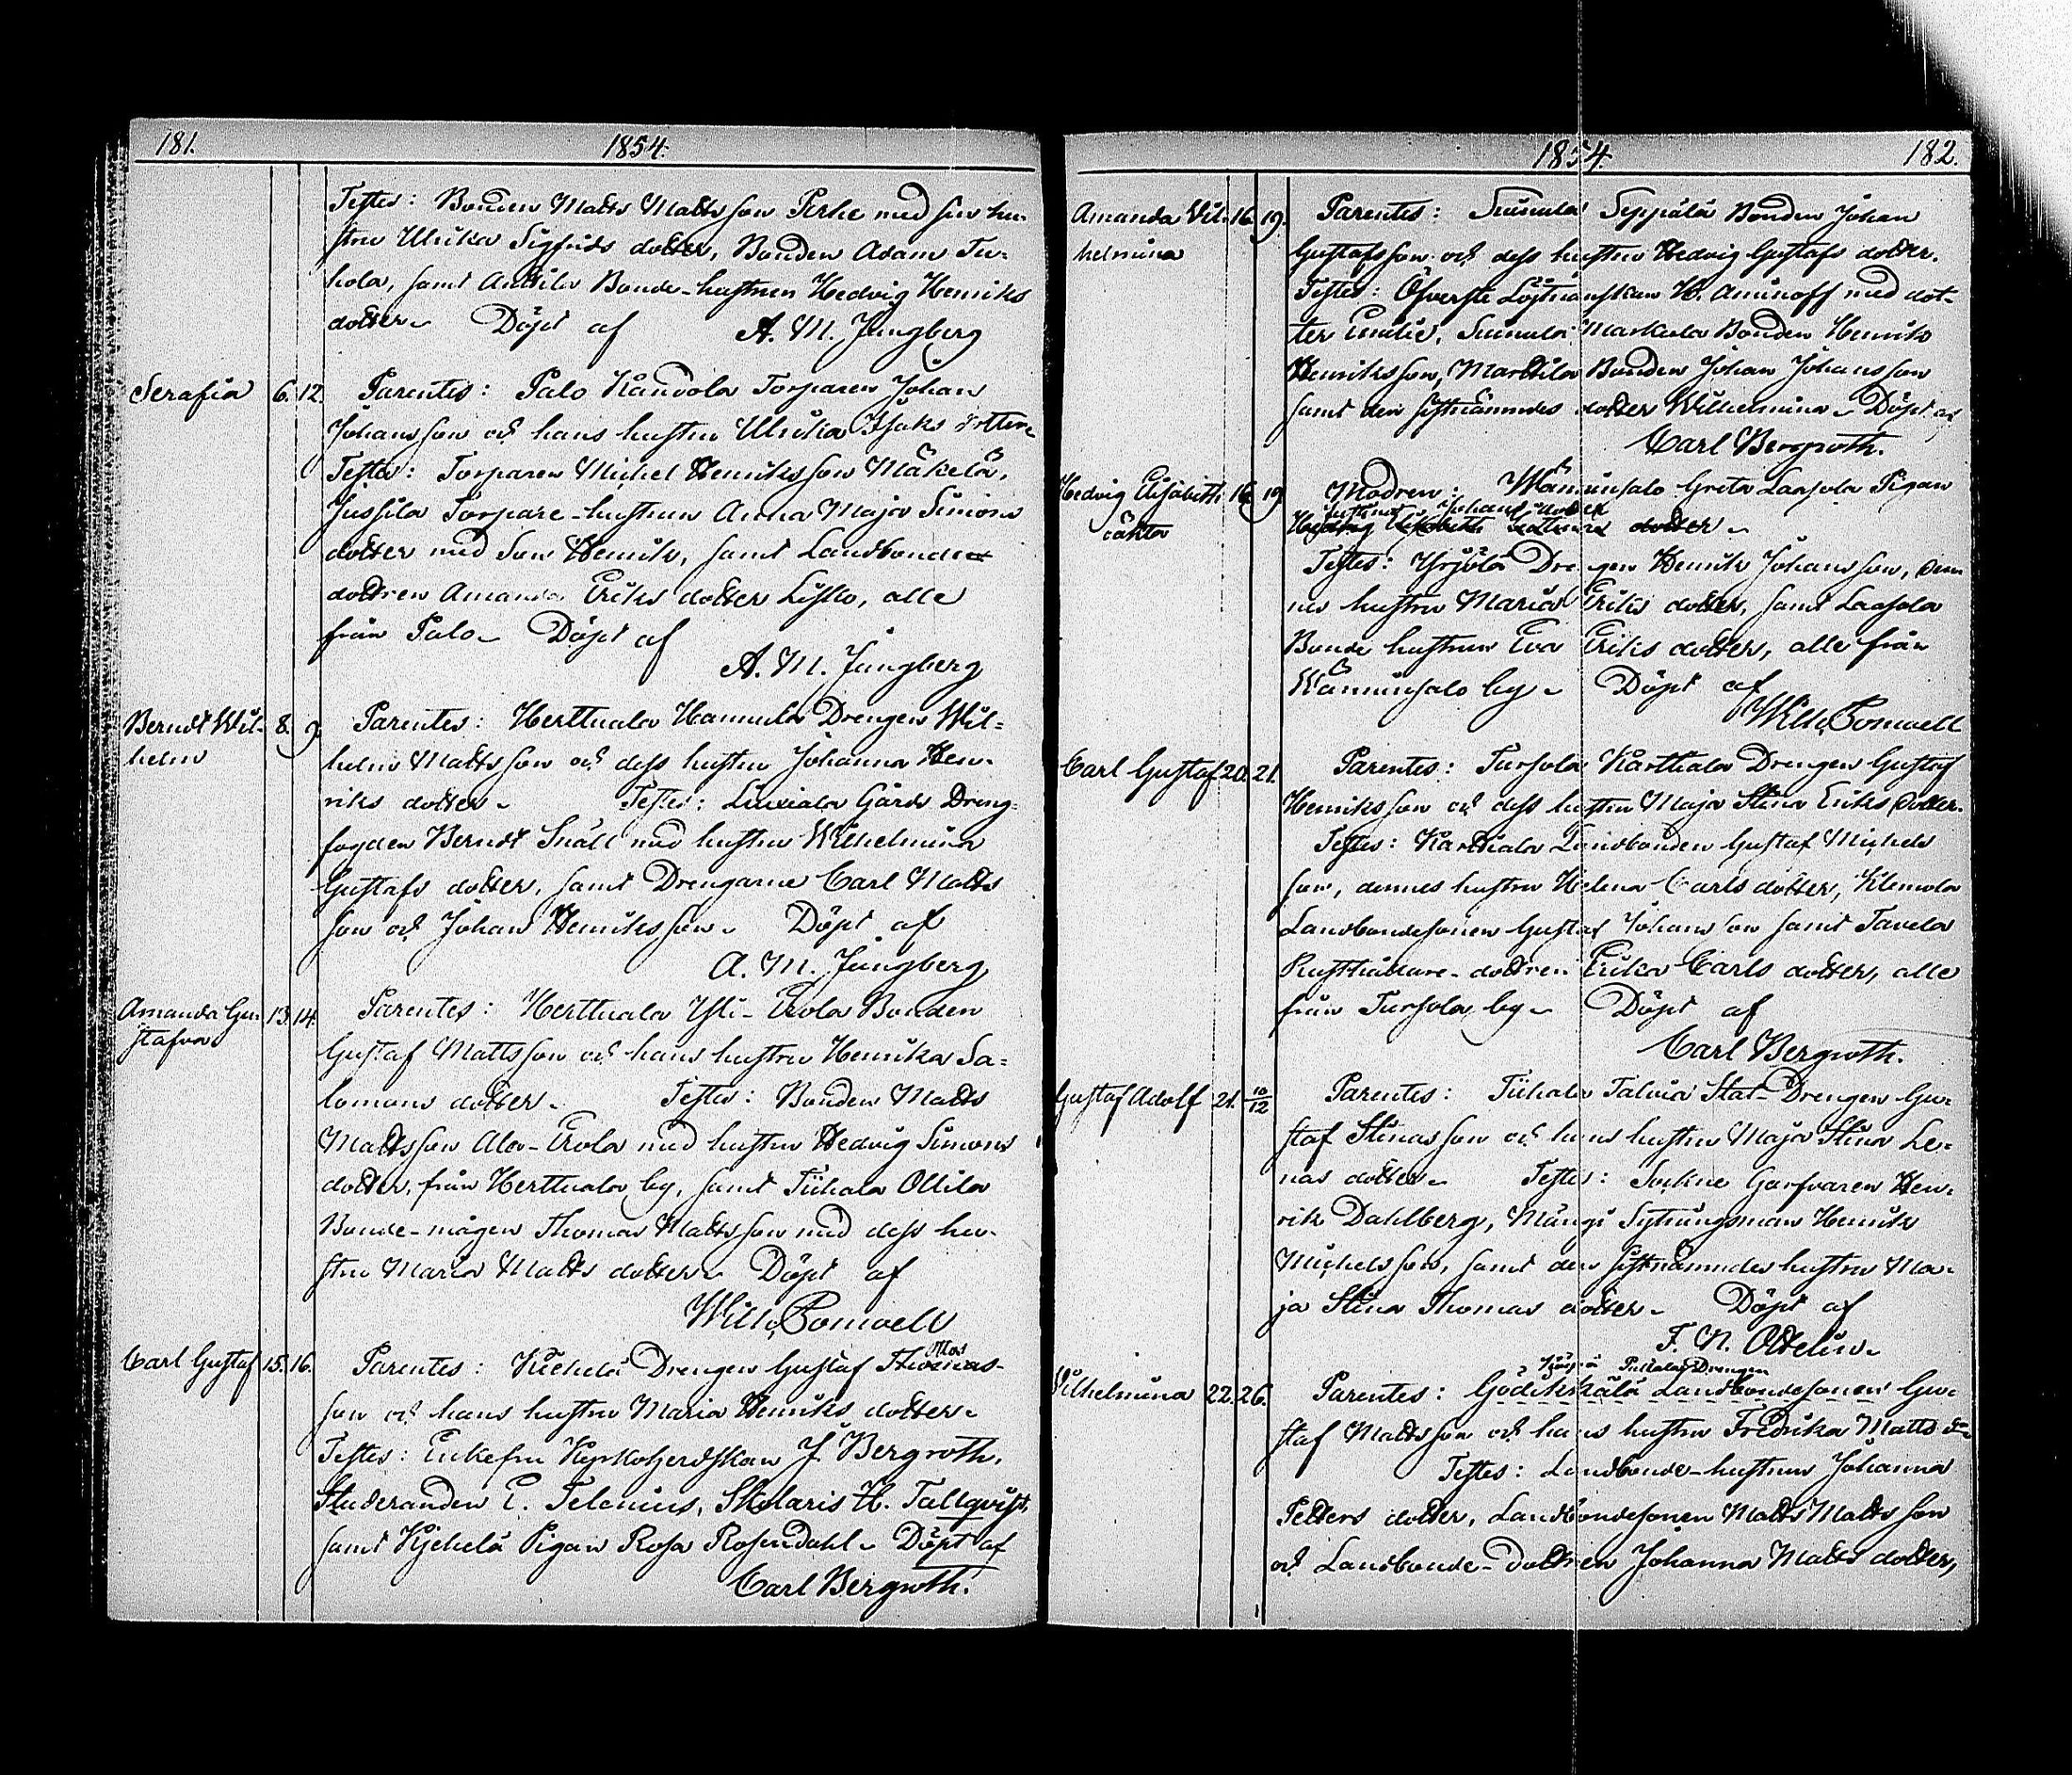 181.
1854.
Testes: Bonden Matts Mattsson Perhe med sin hu-
stru Ulrika Sigfrids dotter, Bonden Adam Tu-
hola, samt Anttila Bonde-hustrun Hedvig Henriks
dotter. Döpt af A. M. Jungberg
Serafia 6. 12. Parentes: Palo Kandola Torparen Johan
Johansson och hans hustru Ulrika Isaks dotter.
Testes: Torparen Michel Henriksson Mäkelä,
Jussila Torpare-hustrun Anna Maja Simons
dotter med Son Henrik, samt Landbonde
dottren Amanda Eriks dotter Lisko, alle
från Palo. Döpt af
A. M. Jungberg
Berndt Wil- 8. 9. Parentes: Herttuala Hannula Drengen Wil-
helm helm Mattsson och dess hustru Johanna Hen-
riks dotter. Testes: Liuxiala Gårds Dreng-
fogden Berndt Snäll med hustru Wilhelmina
Gustafs dotter, samt Drengarne Carl Matts
son och Johan Henriksson. Döpt af
A. M. Jungberg
Amanda Gu- 13. 14. Parentes: Herttuala Yli-Erola Bonden
stafva Gustaf Mattsson och hans hustru Henrika Sa-
lomons dotter. Testes: Bonden Matts
Mattsson Ala-Erola med hustru Hedvig Simons
dotter, från Herttuala by, samt Tiihala Ollila
Bonde-mågen Thomas Mattsson med dess hu-
stru Maria Matts dotter. Döpt af
Wilh. Bomvell
Carl Gustaf 15. 16. Parentes: Kiehelä Drengen Gustaf Thomas-
son och hans hustru Maria Henriks dotter.
Testes: Enkefru Kyrkoherdskan J. Bergroth,
Studeranden E. Telenius, Skolaris H. Tallqvist,
samt Kjehelä Pigan Rosa Rosendahl. Döpt af
Carl Bergroth.
1854.
182.
Amanda Wil- 16. 19. Parentes: Suinula Seppälä Bonden Johan
helmina Gustafsson och dess hustru Hedvig Gustafs dotter.
Testes: Öfverste Löjtnantskan H. Aminoff med dot-
ter Emilie, Suinula Markula Bonden Henrik
Henriksson, Marttila Bonden Johan Johansson
samt den sistnämndes dotter Wilhelmina. Döpt af
Carl Bergroth.
Hedvig Elisabeth 16. 19. Modren: Wäninsalo Greta Laasola Pigan
oäkta Johans dotter
Hedvig Elisabeth dotter.
Testes: Yrjölä Drengen Henrik Johansson, den-
nes hustru Maria Eriks dotter, samt Laasola
Bonde hustrun Eva Eriks dotter, alle från
Wäninsalo by. Döpt af
Wilh. Bomvell
Carl Gustaf 20. 21. Parentes: Tursola Karttiala Drengen Gustaf
Henriksson och dess hustru Maja Stina Eriks dotter.
Testes: Karttiala Landbonden Gustaf Michels
son, dennes hustru Helena Carls dotter, Klemola
Landbondesonen Gustaf Johansson samt Tavela
Rusthållare-dottren Erika Carls dotter, alle
från Tursola by. Döpt af
Carl Bergroth.
Gustaf Adolf 21. 10/12 Parentes: Tiihala Talvia Stat-Drengen Gu-
staf Stinasson och hans hustru Maja Stina Le-
nas dotter. Testes: Sockne Garfvaren Hen-
rik Dahlberg, Mångi Sytningsman Henrik
Michelsson, samt den sistnämndes hustru Ma-
ja Stina Thomas dotter. Döpt af
F. N. Odelin.
Drengen
Wilhelmina 22. 26. Parentes: Gödikskälä Landbondesonen Gu-
staf Mattsson och hans hustru Fredrika Matts dr
Testes: Landbonde-hustrun Johanna
Petters dotter, Landbondesonen Matts Mattsson
och Landbonde-dottren Johanna Matts dotter,